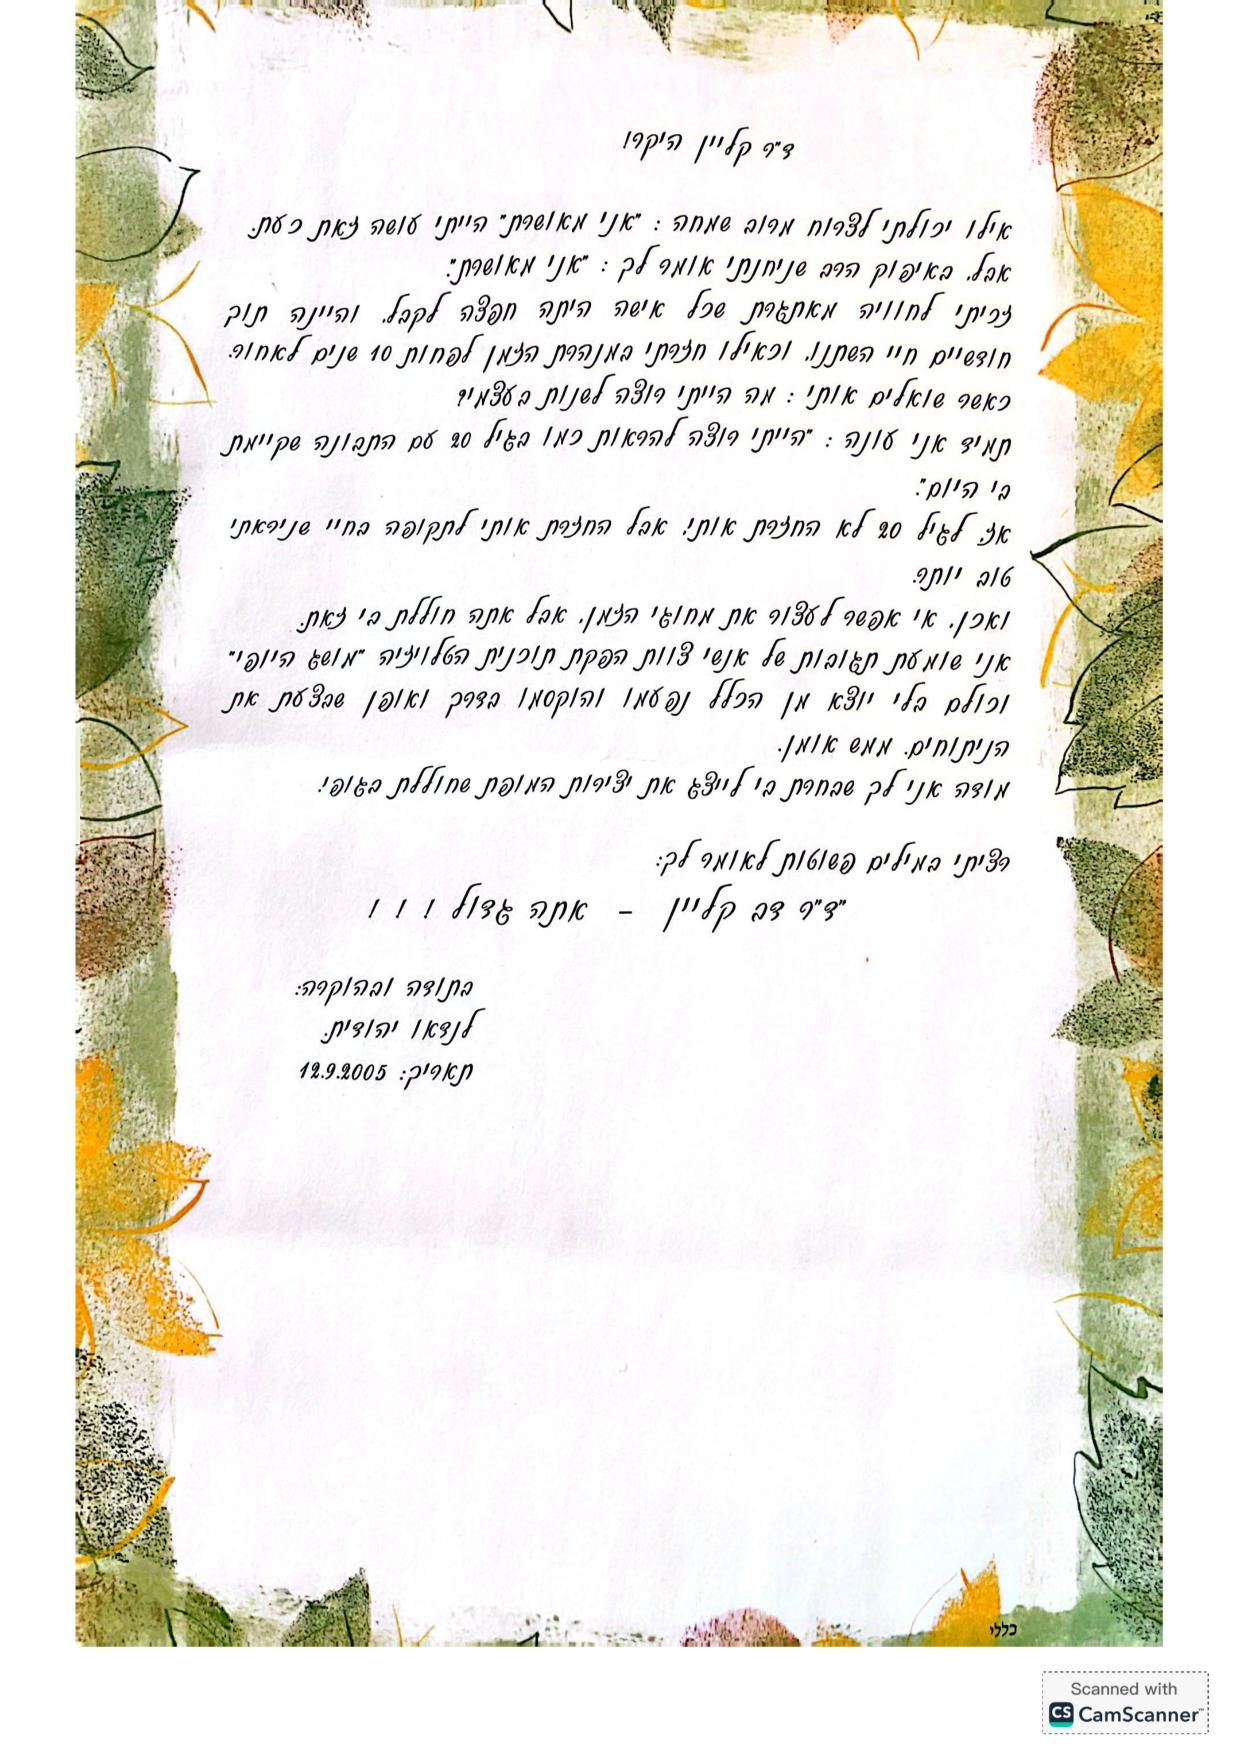 ד"ר קליין היקר!
אילו יכולתי לצרוח מרוב שמחה : "אני מאושרת" הייתי עושה זאת כעת.
אבל, באיפוק הרב שניחנתי אומר לך : "אני מאושרת".
זכיתי לחוויה מאתגרת שכל אישה היתה חפצה לקבל, והיינה תוך
חודשיים חיי השתנו, וכאילו חזרתי במנהרת הזמן לפחות 10 שנים לאחור.
כאשר שואלים אותי : מה הייתי רוצה לשנות בעצמי?
תמיד אני עונה : "הייתי רוצה להראות כמו בגיל 20 עם התבונה שקיימת
בי היום".
אז, לגיל 20 לא החזרת אותי, אבל החזרת אותי לתקופה בחיי שניראתי
טוב יותר.
ואכן, אי אפשר לעצור את מחוגי הזמן, אבל אתה חוללת בי זאת.
אני שומעת תגובות של אנשי צוות הפקת תוכנית הטלויזיה "מושג היופי"
וכולם בלי יוצא מן הכלל נפעמו והוקסמו בדרך ואופן שבצעת את
הניתוחים. ממש אומן.
מודה אני לך שבחרת בי לייצג את יצירות המופת שחוללת בגופי!
רציתי במילים פשוטות לאומר לך:
"ד"ר דב קליין – אתה גדול ! ! !
בתודה ובהוקרה:
לנדאו יהודית.
תאריך: 12.9.2005
כללי
Scanned with
CS CamScanner